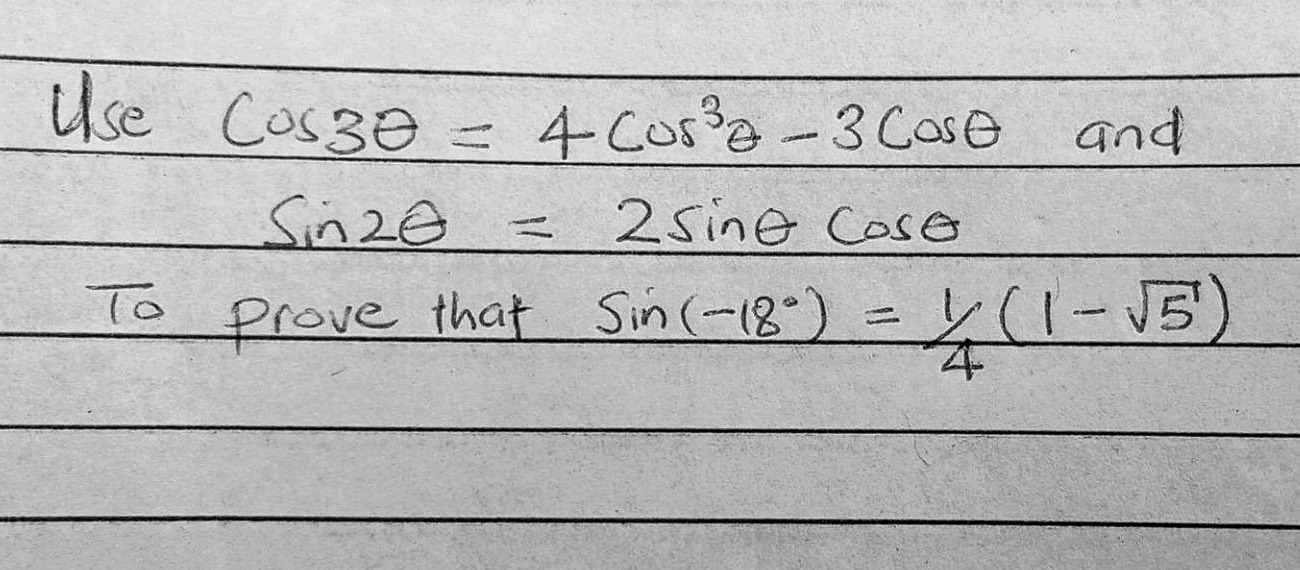 Use Cos3θ = 4Cos³θ - 3Cosθ and
Sin2θ = 2sinθ Cosθ
To prove that Sin(-18°) = 1/4 (1 - √5)